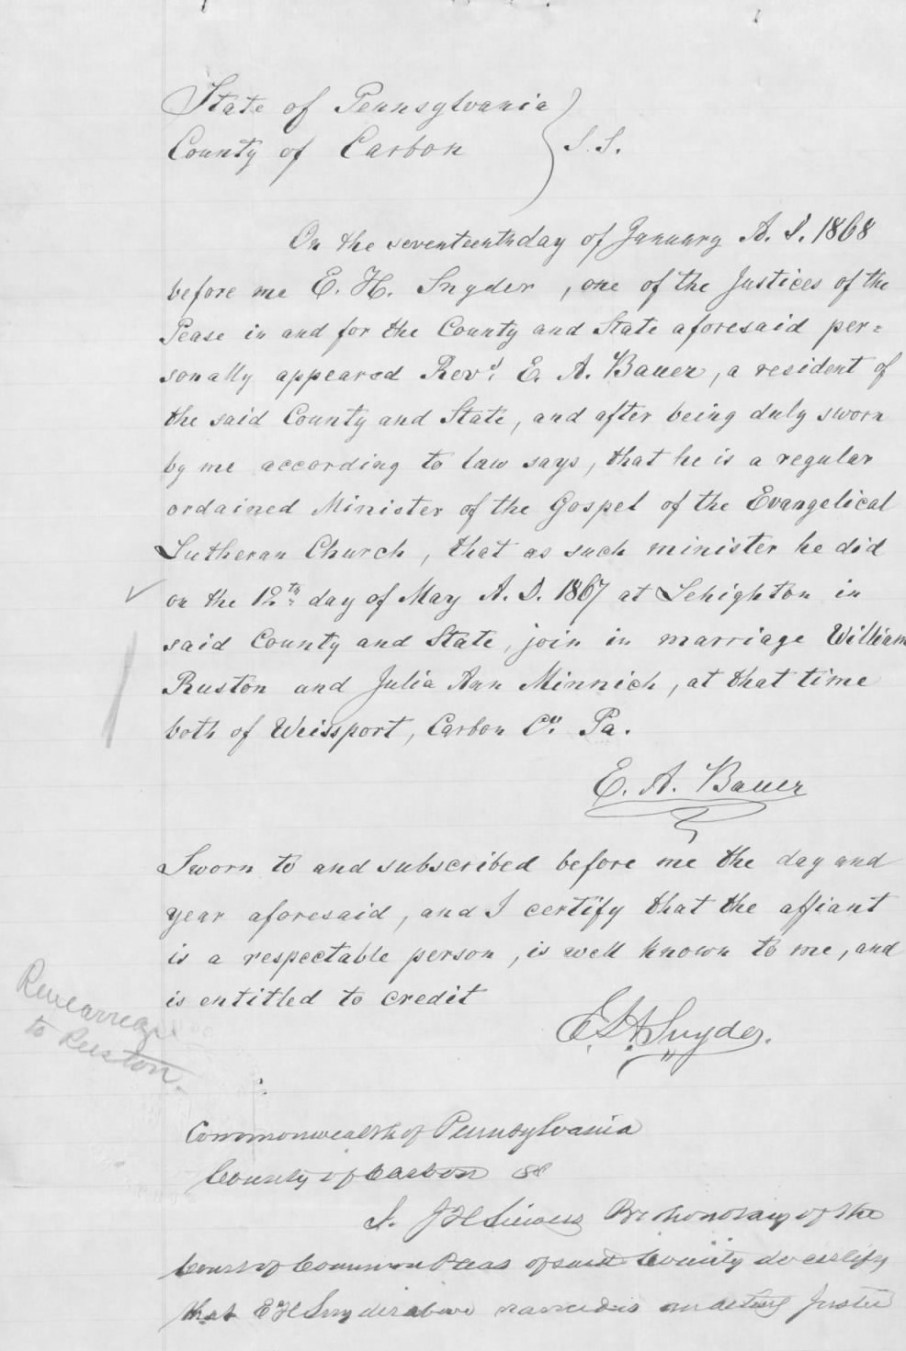 State of Pennsylvania
County of Carbon } S.S.
On the seventeenth day of January A. D. 1868
before me E. H. Snyder, one of the Justices of the
Pease in and for the County and State aforesaid per=
sonally appeared Rev.d E. A. Bauer, a resident of
the said County and State, and after being duly sworn
by me according to law says, that he is a regular
ordained Minister of the Gospel of the Evangelical
Lutheran Church, that as such minister he did
on the 12th day of May A. D. 1867 at Lehighton in
said County and State, join in marriage William
Ruston and Julia Ann Minnich, at that time
both of Weissport, Carbon Co. Pa.
E. A. Bauer
Sworn to and subscribed before me the day and
year aforesaid, and I certify that the affiant
is a respectable person, is well known to me, and
is entitled to credit
E. H. Snyder.
Remarriage
to Ruston.
Commonwealth of Pennsylvania
County of Carbon SS
I. J H Siewers Prothonotary of the
Court of Common Pleas of said County do certify
that E H Snyder above named is an acting Justice